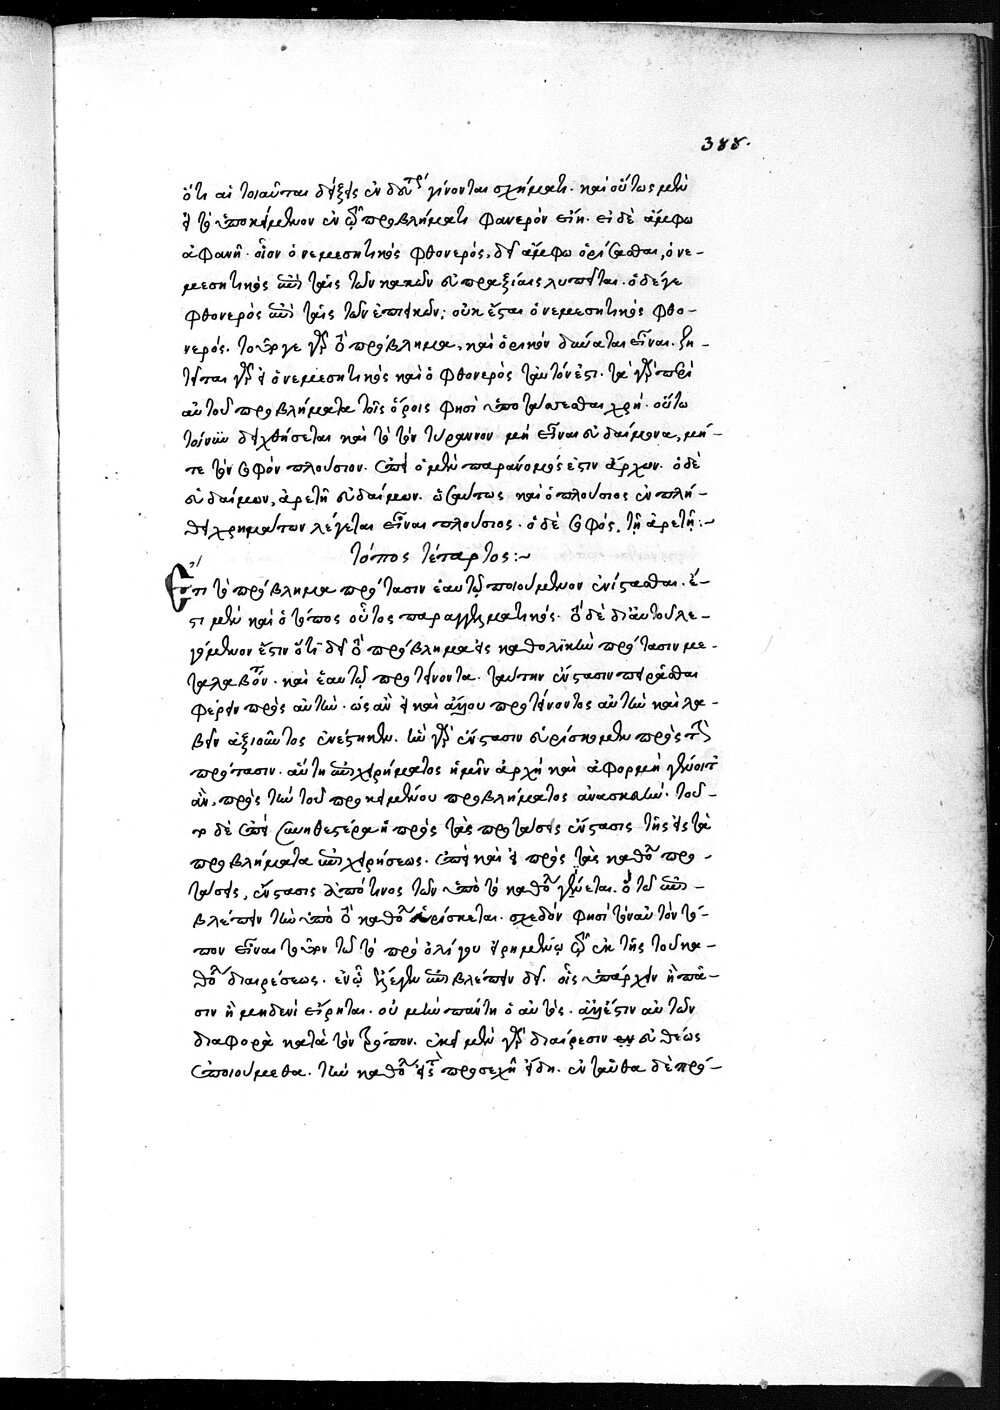 388.
ὅτι αἱ τοιαῦται δείξεις ἐν δευτέρῳ γίνονται σχήματι. καὶ οὕτως μὲν
εἰ τὸ ὑποκείμενον ἐν τῷ προβλήματι φανερὸν εἴη. εἰ δὲ ἄμφω
ἀφανῆ. οἷον ὁ νεμεσητικὸς φθονερός, δεῖ ἄμφω ὁρίσασθαι, ὁ νε-
μεσητικὸς ἐπὶ ταῖς τῶν κακῶν εὐπραξίαις λυπεῖται. ὁ δέ γε
φθονερὸς ἐπὶ ταῖς τῶν ἐπιεικῶν; οὐκ ἔσται ὁ νεμεσητικὸς φθο-
νερός. τοῦτό γε γὰρ τὸ πρόβλημα, καὶ ὁρικὸν δύναται εἶναι. ζη-
τεῖται γὰρ εἰ ὁ νεμεσητικὸς καὶ ὁ φθονερὸς ταὐτόν ἐστι. τὰ γὰρ περὶ
αὐτοῦ προβλήματα τοῖς ὅροις φησὶ ὑποτάσσεσθαι χρή. οὕτω
τοίνυν δειχθήσεται καὶ τὸ τὸν τύραννον μὴ εἶναι εὐδαίμονα, μή-
τε τὸν σοφὸν πλούσιον. ἐπεὶ ὁ μὲν παρανομός ἐστιν ἄρχων. ὁ δὲ
εὐδαίμων, ἀρετῇ εὐδαίμων. ὡσαύτως καὶ ὁ πλούσιος ἐν πλή-
θει χρημάτων λέγεται εἶναι πλούσιος. ὁ δὲ σοφός, τῇ ἀρετῇ:~
τόπος τέταρτος:~
Ἔτι τὸ πρόβλημα πρότασιν ἑαυτῷ ποιούμενον ἐνίστασθαι. ἔ-
στι μὲν καὶ ὁ τόπος οὗτος παραγγελματικός. τὸ δὲ δι' αὐτοῦ λε-
γόμενον ἔστιν ὅτι δεῖ τὸ πρόβλημα εἰς καθολικὴν πρότασιν με-
ταλαβόντα. καὶ ἑαυτῷ προτείνοντα. ταύτην ἔνστασιν πειρᾶσθαι
φέρειν πρὸς αὐτήν. ὡς ἂν εἰ καὶ ἄλλου προτείνοντος αὐτὴν καὶ λα-
βεῖν ἀξιοῦντος ἐνέστη. τὴν γὰρ ἔνστασιν εὑρίσκομεν πρὸς τὴν
πρότασιν. αὕτη ἐπιχειρήματος ἡμῖν ἀρχὴ καὶ ἀφορμὴ γένοιτ'
ἄν, πρὸς τὴν τοῦ προκειμένου προβλήματος ἀνασκευήν. τοῦ-
το δὲ ἐπεὶ συνηθεστέρα ἡ πρὸς τὰς προτάσεις ἔνστασις τῆς εἰς τὰ
προβλήματα ἐπιχειρήσεως. ἐπεὶ καὶ εἰ πρὸς τὰς καθόλου προ-
τάσεις, ἔνστασις ἀπό τινος τῶν ὑπὸ τὸ καθόλου γίνεται. ὃ τῷ ἐπι-
βλέπειν τῶν ὑπὸ τὸ καθόλου εὑρίσκεται. σχεδὸν φησὶ τὸν αὐτὸν τό-
πον εἶναι τοῦτον τῷ τὸ πρὸ ὀλίγου εἰρημένῳ τῷ ἐκ τῆς τοῦ κα-
θόλου διαιρέσεως. ἐν ᾧ ἔλεγεν ἐπιβλέπειν δεῖ. οἷς ὑπάρχειν ἢ πᾶ-
σιν ἢ μηδενὶ εἴρηται. οὐ μὲν πάντη ὁ αὐτός. ἀλλ' ἔστιν αὐτῶν
διαφορὰ κατὰ τὸν τρόπον. ἐκεῖ μὲν γὰρ διαίρεσιν εὐθέως
ἐποιούμεθα. τῶν καθόλου εἰς τὰ προσεχῆ εἴδη. ἐνταῦθα δὲ πρό-